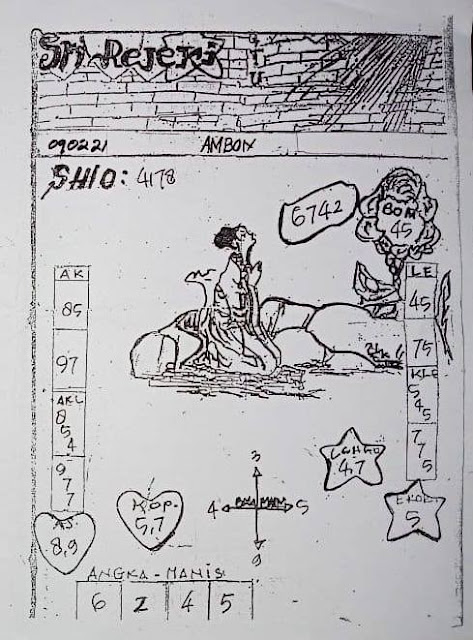 Sri Rejeki
G
T
U
090221 AMBON
SHIO: 4178
6742
BOM
45
AK
85
97
AKL
8
5
4
9
7
7
LE
45
75
KLE
5
4
5
7
7
5
AS.
8,9
KOP.
5,7
3
4
5
9
47
EKOR
5
ANGKA-MANIS
6 2 4 5